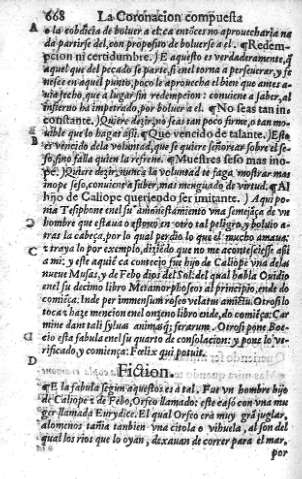 668 La Coronacion compuesta
A o la cobdicia de boluer a el: ca entõces no aprouecharia na
da partirse del, con proposito de boluerse a el. ¶ Redem-
pcion ni certidumbre.) E aquesto es verdaderamente, q̃
aquel que del pecado se parte, si en el torna a perseuerar, y fe
nesce en aquel punto, poco le aprouecha el bien que antes a-
uia fecho, que a lugar sin redempcion: conuiene a saber, al
infierno ha imperrado, por boluer a el. ¶ No seas tan in-
constante.) Quiere dezir, no seas tan poco firme, o tan mo-
uible que lo hagas assi. ¶ Que vencido de talante.) Esto
B er vencido de la voluntad, que se quiere señorear sobre el se-
so, sino falla quien la refrene. ¶ Muestres seso mas ino-
pe.) Quiere dezir, nunca la voluntad te faga mostrar mas
inope seso, conuiene a saber, mas menguado de virtud. ¶ Al
hijo de Caliope queriendo ser imitante.) Aqui po-
nia Tesiphone enel su amonestamiento vna semejãça de vn
hombre que estauo assi mesmo en otro tal peligro, y boluio a-
C tras la cabeça, por lo qual perdio lo que el mucho amaua:
z traya lo por exemplo, diziẽdo que no me contesciesse assi
a mi: y este aqui ca contecio fue hijo de Caliope vna delas
nueue Musas, y de Febo dios del Sol: del qual habla Ouidio
enel su decimo libro Metamorphoseos al principio, ende do
comiẽça: Inde per immensum roseo velatus amictu. Otrosi lo
toca z haze mencion enel onzeno libro ende, do comiẽça: Car
mine dum tali syluas animasq́; ferarum. Otrosi pone Boe-
cio esta fabula enel su quarto de consolacion: y pone lo ve-
rificado, y comiença: Felix qui potuit.
D Fiction.
¶ E la fabula segun aquestos es a tal. Fue vn hombre hijo
de Caliope z de Febo, Orfeo llamado: este casó con vna mu
ger llamada Eurydice. El qual Orfeo era muy grã juglar,
alomenos tañia tambien vna citola o vihuela, al son del
qual los rios que lo oyan, dexauan de correr para el mar,
por